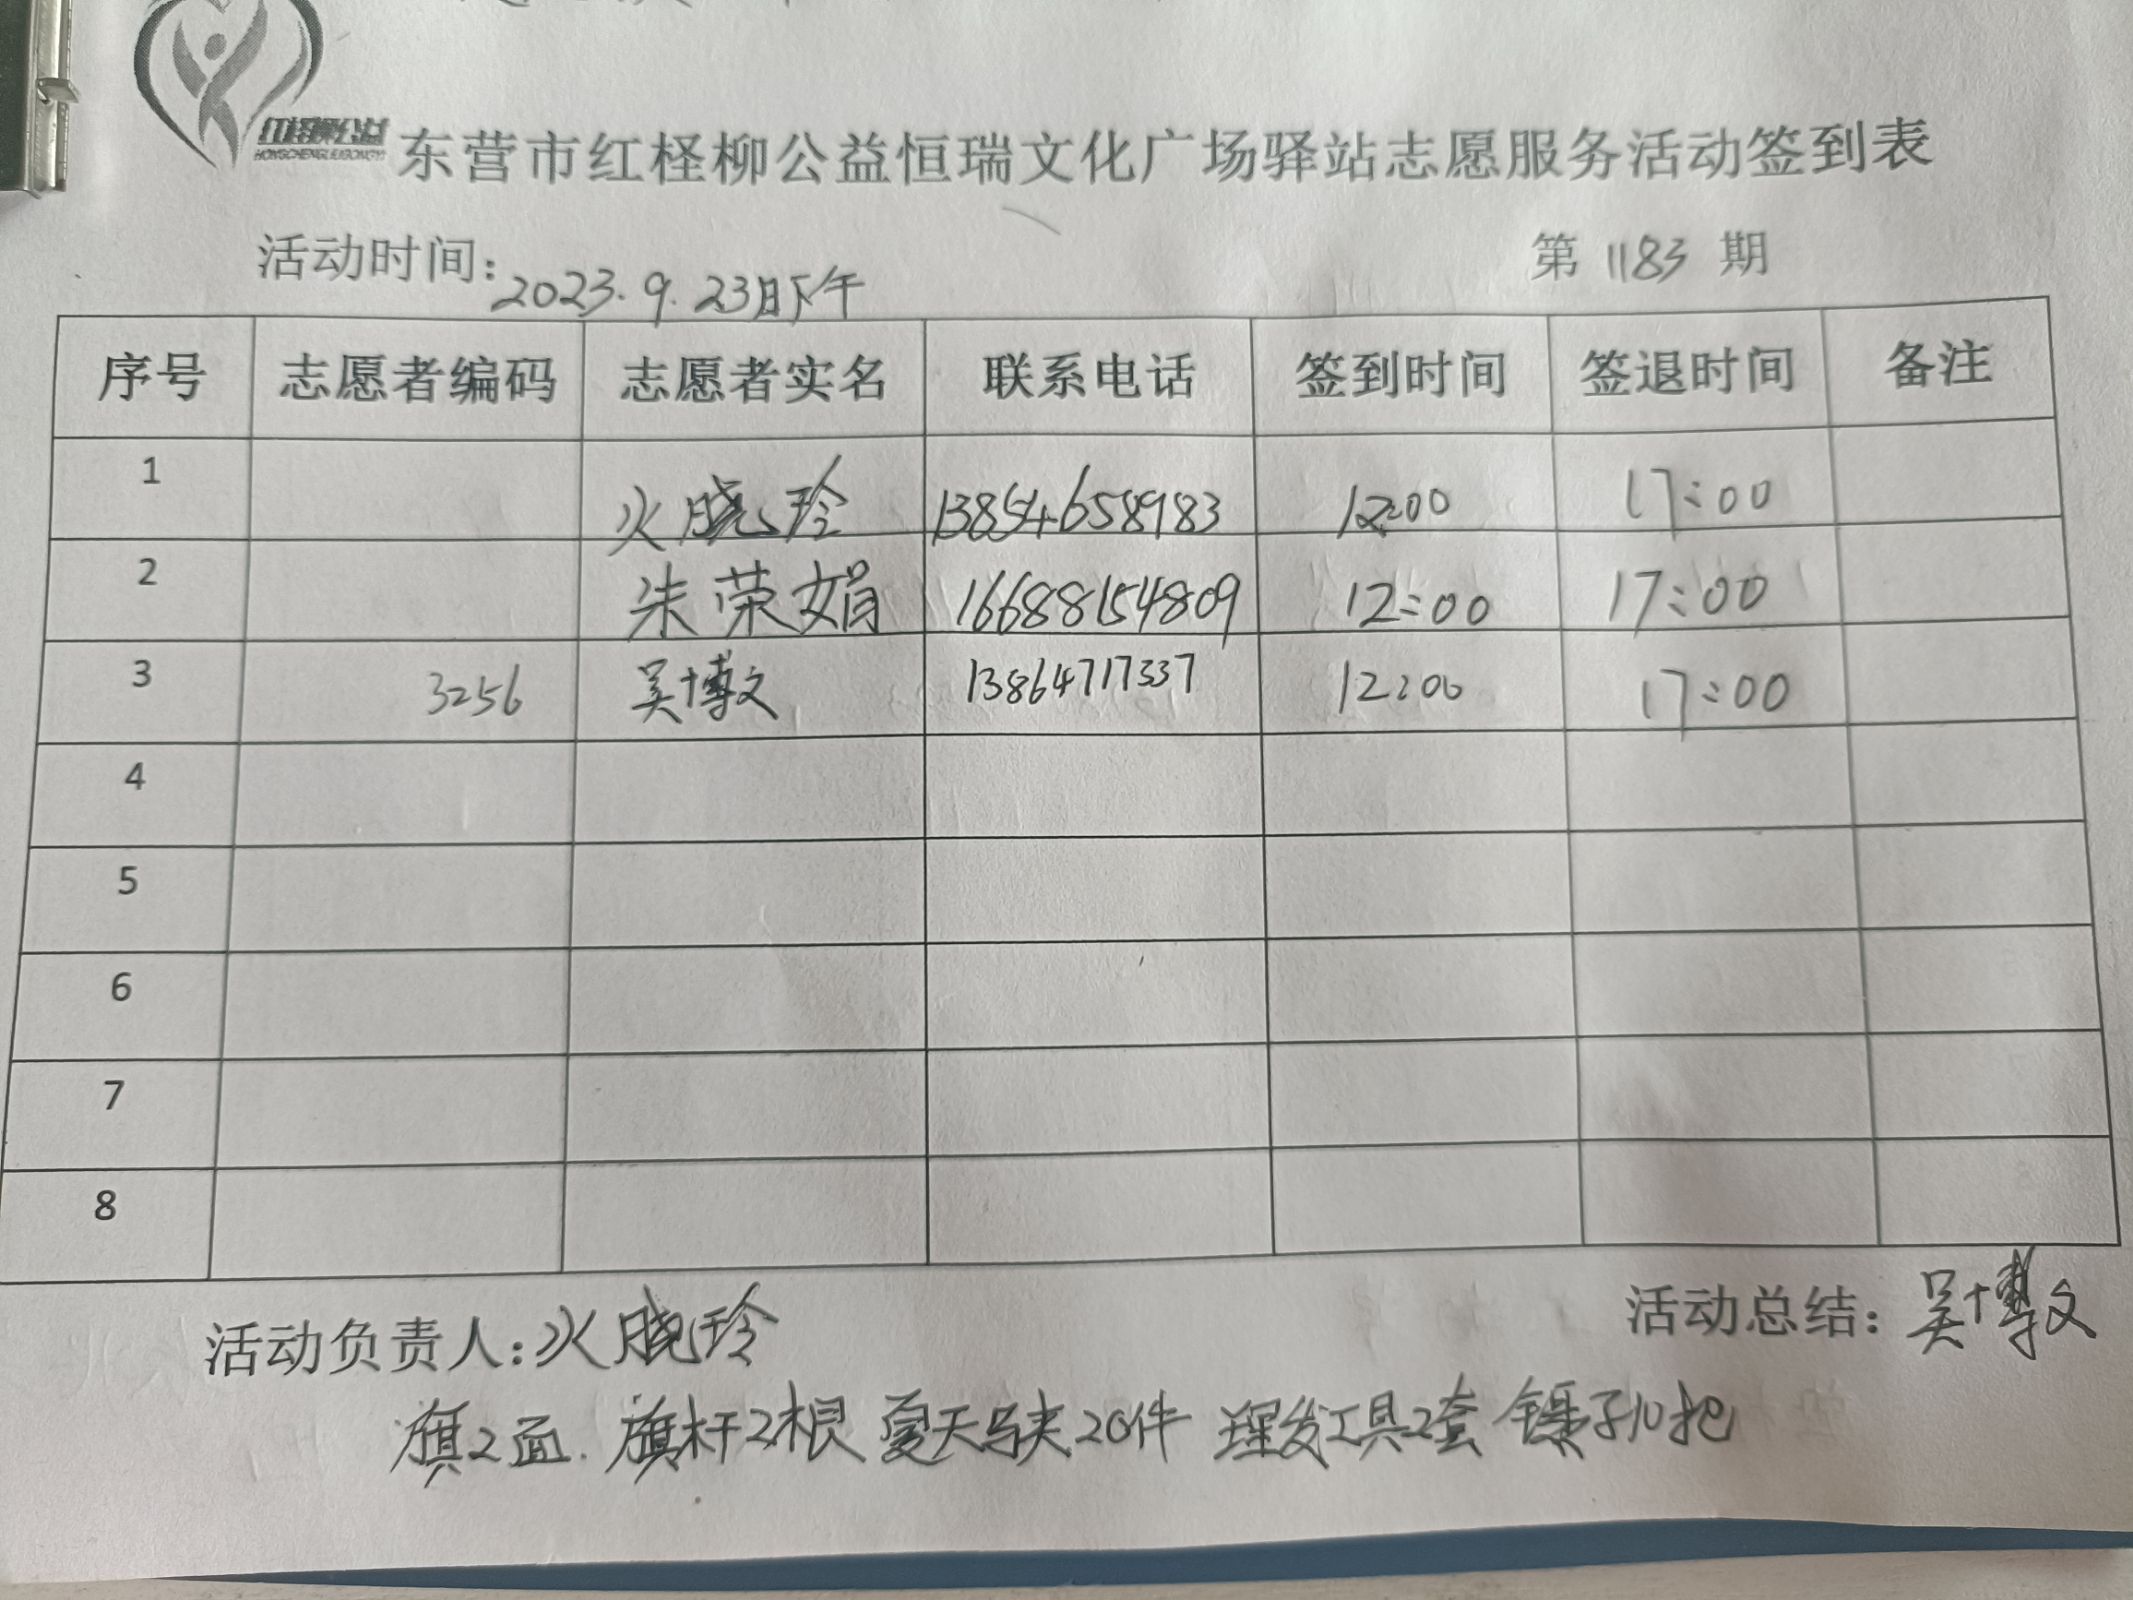 红柽柳公益
东营市红柽柳公益恒瑞文化广场驿站志愿服务活动签到表
活动时间：2023.9.23日下午 第 1183 期
序号 志愿者编码 志愿者实名 联系电话 签到时间 签退时间 备注
1 火晓玲 13854658983 12:00 17:00
2 朱荣娟 16688154809 12:00 17:00
3 3256 吴博文 13864717337 12:00 17:00
4
5
6
7
8
活动负责人：火晓玲 活动总结：吴博文
旗2面. 旗杆2根 夏天马夹20件 理发工具2套 镊子10把